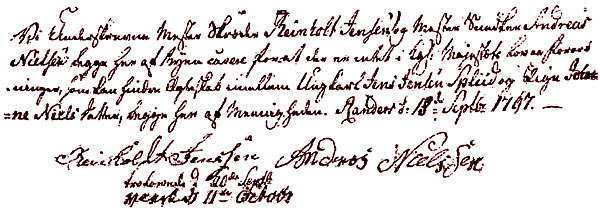 Vi Underskrevne Mester Skræder Reinholt Jensen og Mester Snedker Andreas
Nielsen begge her af Byen cavere for at der er intet i Kgl: Majestets Love og Forord
ninger, som kan hindre Ægteskab imellem Ungkarl Jens Jensen Spleid og Pigen Johan
=ne Niels datter, begge her af Menigheden. Randers d: 18de Septbr 1767. —
Reinholdt Jensen Andreas Nielsen
trolovede d 20de Septbr
viede d 11te October